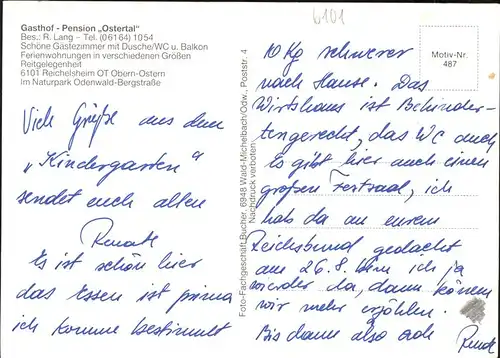 Gasthof - Pension „Ostertal"
Bes.: R. Lang – Tel. (06164) 1054
Schöne Gästezimmer mit Dusche/WC u. Balkon
Ferienwohnungen in verschiedenen Größen
Reitgelegenheit
6101 Reichelsheim OT Obern-Ostern
Im Naturpark Odenwald-Bergstraße
Viele Grüße aus dem
„Kindergarten"
sendet euch allen
Renate
Es ist schön hier
das Essen ist prima
ich komme bestimmt
Foto-Fachgeschäft Bucher, 6948 Wald-Michelbach/Odw., Poststr. 4
Nachdruck verboten
6101
Motiv-Nr.
487
10 Kg schwerer
nach Hause. Das
Wirtshaus ist Behinder-
tengerecht, das WC auch
Es gibt hier auch einen
großen Festsaal, ich
hab da an euren
Reichsbund gedacht
am 26.8. bin ich ja
wieder da, dann können
wir mehr erzählen.
Bis dann also ade